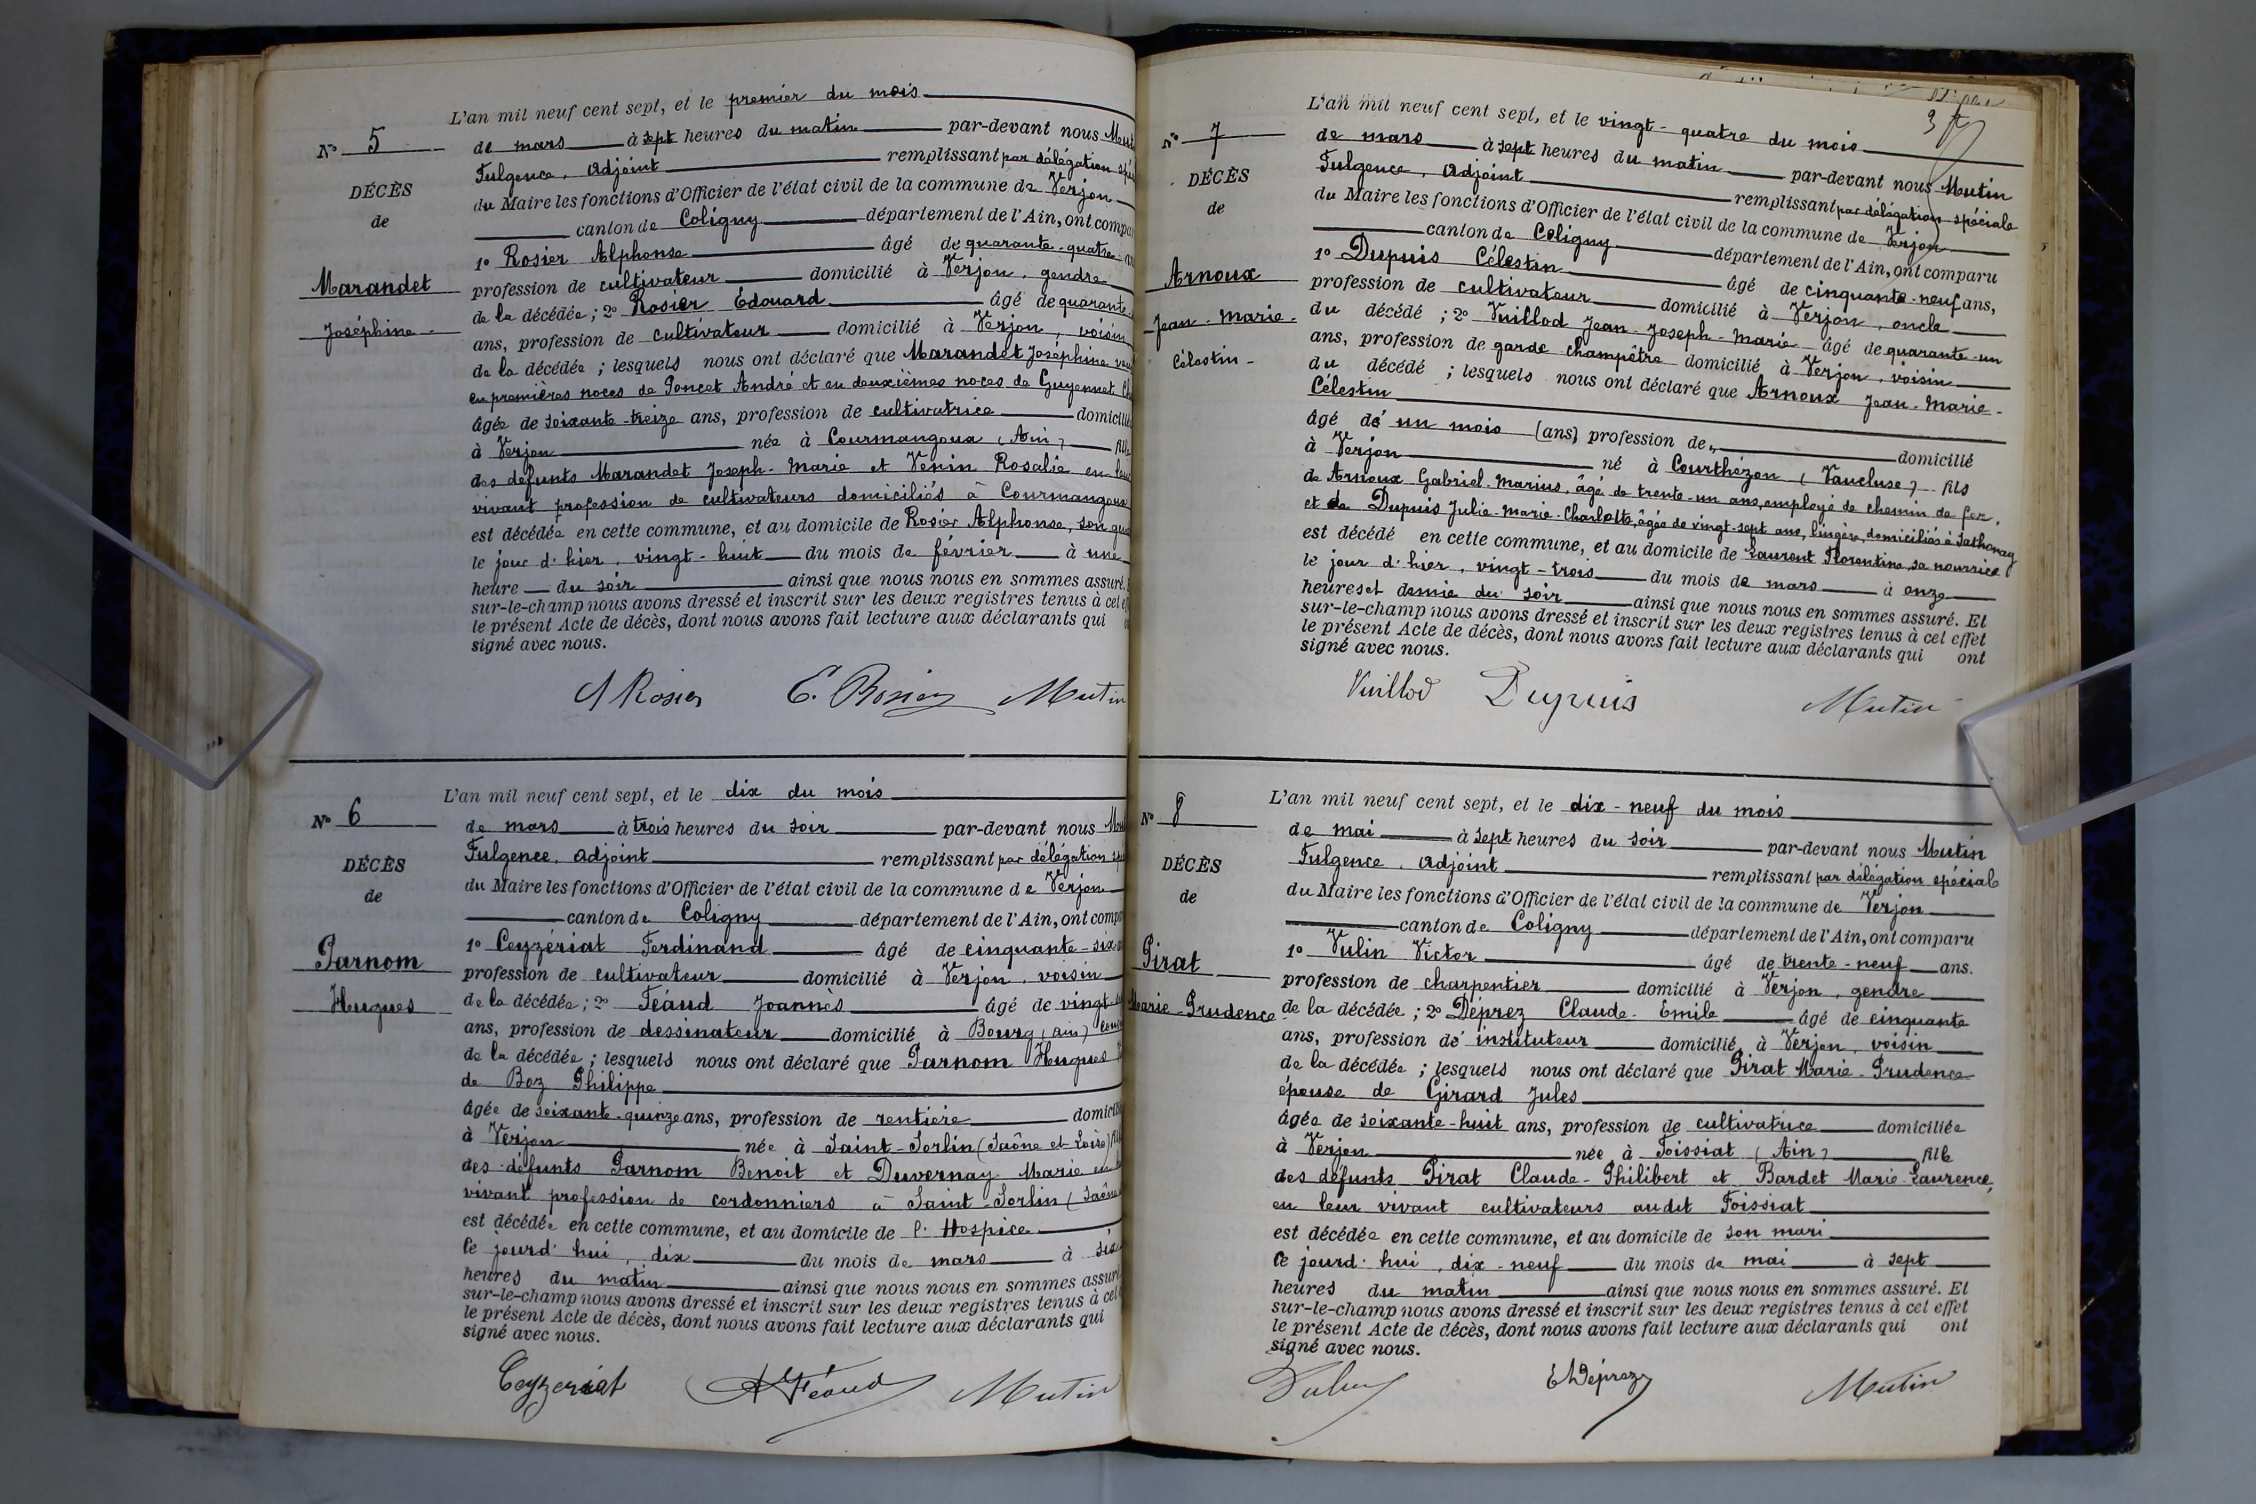 L'an mil neuf cent sept, et le premier du mois
No 5
de mars à sept heures du matin par-devant nous
Fulgence, adjoint remplissant par délégation
DÉCÈS
du Maire les fonctions d'Officier de l'état civil de la commune de Verjon
de
canton de Coligny département de l'Ain, ont
1o Rosier Alphonse âgé de quarante-quatre
Marandet
profession de cultivateur domicilié à Verjon, gendre
Joséphine
de la décédée ; 2o Rosier Édouard âgé de quarante
ans, profession de cultivateur domicilié à Verjon, voisin
de la décédée ; lesquels nous ont déclaré que Marandet Joséphine
en premières noces de Poncet André et en deuxièmes noces de Guyennet
âgée de soixante-treize ans, profession de cultivatrice
à Verjon née à Courmangoux (Ain)
des défunts Marandet Joseph-Marie et Venin Rosalie en
vivant profession de cultivateurs domiciliés à Courmangoux
est décédée en cette commune, et au domicile de Rosier Alphonse, son
le jour d'hier, vingt-huit du mois de février à une
heure du soir ainsi que nous nous en sommes assuré.
sur-le-champ nous avons dressé et inscrit sur les deux registres tenus à cet
le présent Acte de décès, dont nous avons fait lecture aux déclarants qui
signé avec nous.
A Rosier E. Rosier Mutin
L'an mil neuf cent sept, et le dix du mois
No 6
de mars à trois heures du soir par-devant nous
Fulgence, adjoint remplissant par délégation
DÉCÈS
du Maire les fonctions d'Officier de l'état civil de la commune de Verjon
de
canton de Coligny département de l'Ain, ont
1o Ceyzériat Ferdinand âgé de cinquante-six
Parnom
profession de cultivateur domicilié à Verjon, voisin
Hugues
de la décédée ; 2o Féaud Joannès âgé de vingt
ans, profession de dessinateur domicilié à Bourg (Ain)
de la décédée ; lesquels nous ont déclaré que Parnom Hugues
de Boz Philippe
âgée de soixante-quinze ans, profession de rentière
à Verjon née à Saint-Sorlin (Saône et Loire)
des défunts Parnom Benoit et Duvernay Marie en
vivant profession de cordonniers à Saint-Sorlin (Saône
est décédée en cette commune, et au domicile de l'Hospice
le jourd'hui, dix du mois de mars à six
heures du matin ainsi que nous nous en sommes assuré
sur-le-champ nous avons dressé et inscrit sur les deux registres tenus à cet
le présent Acte de décès, dont nous avons fait lecture aux déclarants qui
signé avec nous.
Ceyzeriat Féaud Mutin
L'an mil neuf cent sept, et le vingt-quatre du mois
No 7
de mars à sept heures du matin par-devant nous Mutin
Fulgence, adjoint remplissant par délégation spéciale
DÉCÈS
du Maire les fonctions d'Officier de l'état civil de la commune de Verjon
de
canton de Coligny département de l'Ain, ont comparu
1o Dupuis Célestin âgé de cinquante-neuf ans,
Arnoux
profession de cultivateur domicilié à Verjon, oncle
Jean-Marie-
du décédé ; 2o Vuillod Jean-Joseph-Marie âgé de quarante-un
Célestin
ans, profession de garde champêtre domicilié à Verjon, voisin
du décédé ; lesquels nous ont déclaré que Arnoux Jean-Marie-
Célestin
âgé de un mois (ans) profession de " domicilié
à Verjon né à Courthézon (Vaucluse) fils
de Arnoux Gabriel-Marius, âgé de trente-un ans, employé de chemin de fer,
et de Dupuis Julie-Marie-Charlotte, âgée de vingt-sept ans, lingère, domiciliés à Sathonay
est décédé en cette commune, et au domicile de Laurent Florentine, sa nourrice
le jour d'hier, vingt-trois du mois de mars à onze
heures et demie du soir ainsi que nous nous en sommes assuré. Et
sur-le-champ nous avons dressé et inscrit sur les deux registres tenus à cet effet
le présent Acte de décès, dont nous avons fait lecture aux déclarants qui ont
signé avec nous.
Vuillod Dupuis Mutin
L'an mil neuf cent sept, et le dix-neuf du mois
No 8
de mai à sept heures du soir par-devant nous Mutin
Fulgence, adjoint remplissant par délégation spéciale
DÉCÈS
du Maire les fonctions d'Officier de l'état civil de la commune de Verjon
de
canton de Coligny département de l'Ain, ont comparu
1o Vulin Victor âgé de trente-neuf ans.
Pirat
profession de charpentier domicilié à Verjon, gendre
Marie-Prudence
de la décédée ; 2o Déprez Claude-Emile âgé de cinquante
ans, profession de instituteur domicilié à Verjon, voisin
de la décédée ; lesquels nous ont déclaré que Pirat Marie-Prudence
épouse de Girard Jules
âgée de soixante-huit ans, profession de cultivatrice domiciliée
à Verjon née à Foissiat (Ain) fille
des défunts Pirat Claude-Philibert et Bardet Marie-Laurence,
en leur vivant cultivateurs audit Foissiat
est décédée en cette commune, et au domicile de son mari
le jourd'hui, dix-neuf du mois de mai à sept
heures du matin ainsi que nous nous en sommes assuré. Et
sur-le-champ nous avons dressé et inscrit sur les deux registres tenus à cet effet
le présent Acte de décès, dont nous avons fait lecture aux déclarants qui ont
signé avec nous.
Vulin Déprez Mutin